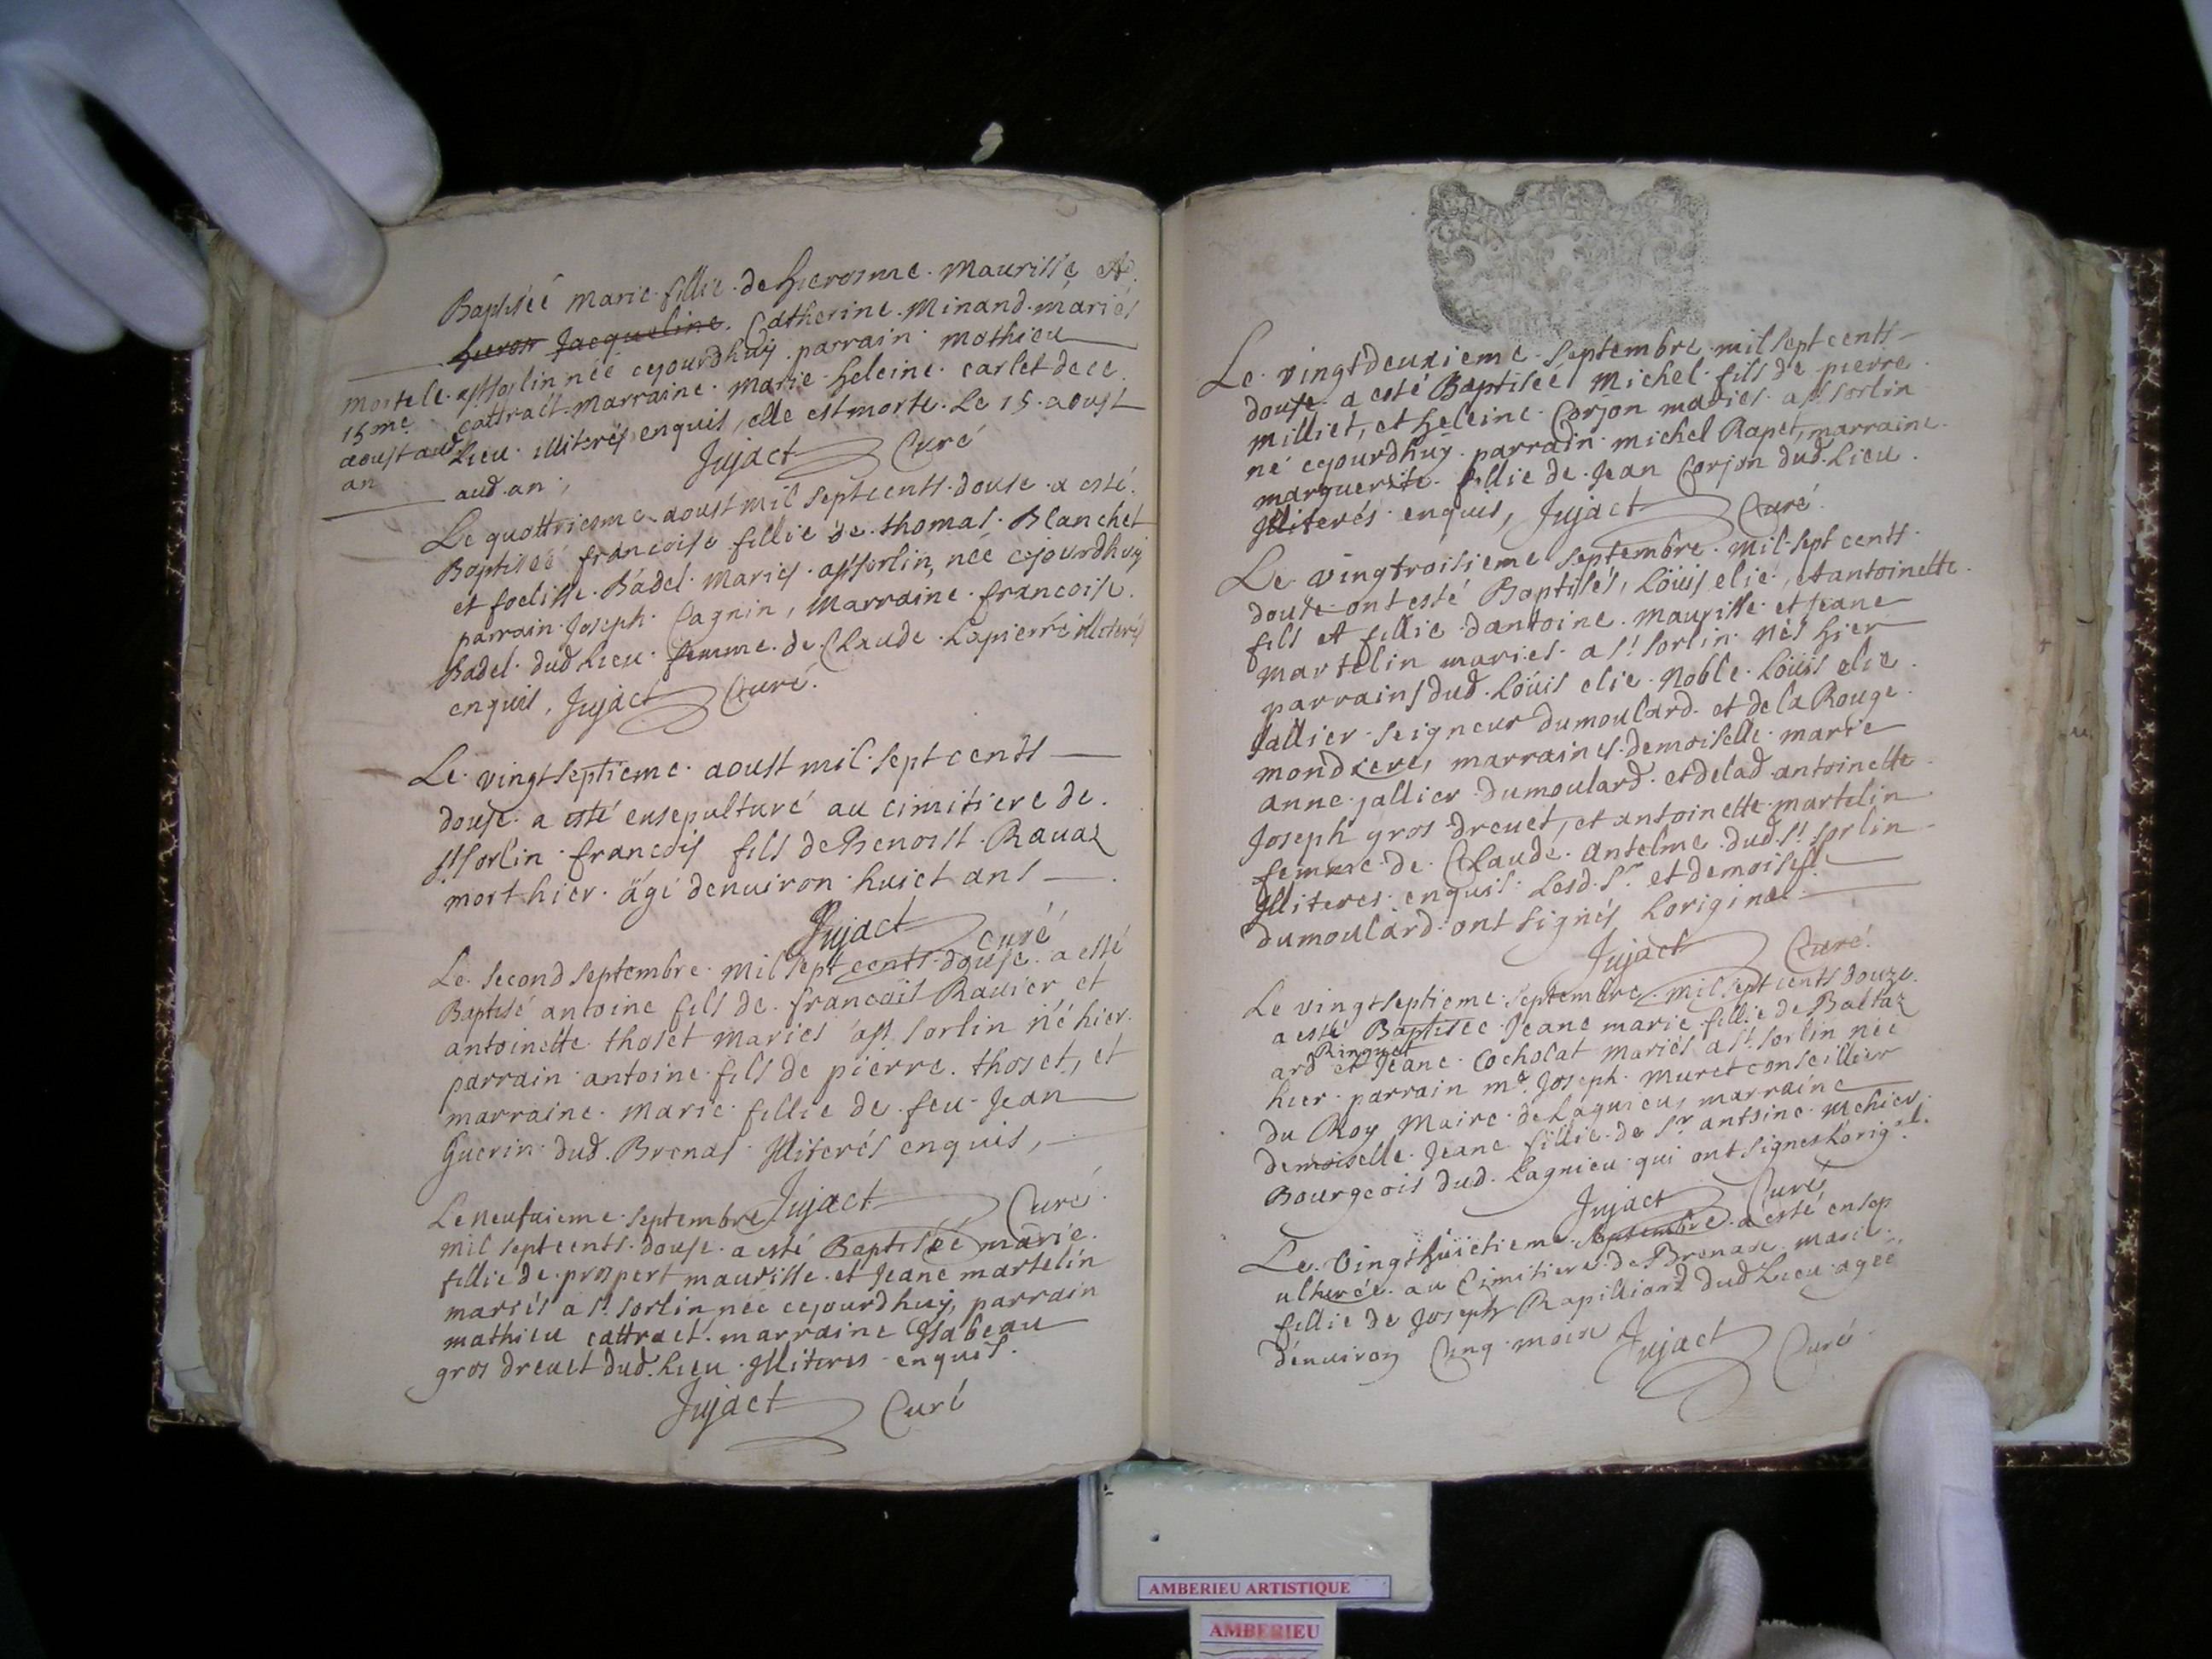 Baptisée marie fillie de hierosme Maurisse et
hieros Jacqueline Catherine Minand mariés
a st sorlin née cejourdhuy parrain mathieu
cattract marraine marie heleine carlet de ce
Lieu illiterés enquis, elle est morte Le 15 aoust
aud. an,
Jujact Curé
morte le
15me
aoust aud
an
Le quattriesme aoust mil septcents douse a esté
Baptiséé francoise fillie de thomas Blanchet
et foelisse Badel mariés a st sorlin, née cejourdhuy
parrain Joseph Cagnin, Marraine francoise
Badel dud Lieu femme de Claude Lapierre illiterés
enquis, Jujact Curé.
Le vingtseptieme aoust mil sept cents
douse a esté ensepulturé au cimitiere de
st sorlin francois fils de Benoist Rauaz
mort hier âgé denuiron huict ans
Jujact curé
Le second septembre mil sept cents douse a esté
Baptisé antoine fils de francois Rauier et
antoinette thoset mariés a st sorlin né hier
parrain antoine fils de pierre thoset, et
marraine Marie fillie de feu Jean
Guerin dud. Brenas illiterés enquis,
Jujact Curé
Le neufuieme septembre
mil septcents douse a esté Baptiséé marie
fillie de prospert maurisse et Jeane martelin
mariés a st. sorlin née cejourdhuy, parrain
mathieu cattract marraine Isabeau
gros dreuet dud. Lieu Illiteres enquis.
Jujact Curé
Le vingtdeuxieme septembre mil sept cents
douse a esté Baptiseé Michel fils de pierre
milliet, et heleine Corjon mariés a st sorlin
né cejourdhuy parrain michel Rapet, marraine
marguerite fillie de Jean Corjon dud. Lieu
Illiterés enquis, Jujact Curé
Le vingtroisieme septembre mil sept cents
douse ont esté Baptisés, Loüis elie, et antoinette
fils et fillie dantoine maurisse et Jeane
martelin mariés a st sorlin nés hier
parrains dud. Loüis elie Noble Loüis elie
Jallier seigneur dumoulard et de la Rouge
mondiere, marraines demoiselle marie
anne jallier dumoulard et delad antoinette
Joseph gros dreuet, et antoinette martelin
femme de Claude antelme dud st. sorlin
Illiteres enquis Lesd. sr et demoiselle
dumoulard ont signés Loriginal
Jujact Curé
Le vingtseptieme septembre mil sept cents douze
a esté Baptisee Jeane marie fillie de Baltaz
ard Ringuet et Jeane Cocholat Mariés a st sorlin née
hier parrain mr. Joseph Muret conseillier
du Roy Maire de Lagnieu, marraine
demoiselle Jeane fillie de sr antoine Mehier
Bourgeois dud. Lagnieu qui ont signes Lorigal.
Jujact Curé
Le vingthuictieme septembre a esté ensep
ulturée au Cimitiere de Brenas marie
fillie de Joseph Rapilliard dud Lieu ageé
denuiron Cinq mois Jujact Curé
AMBERIEU ARTISTIQUE
AMBERIEU